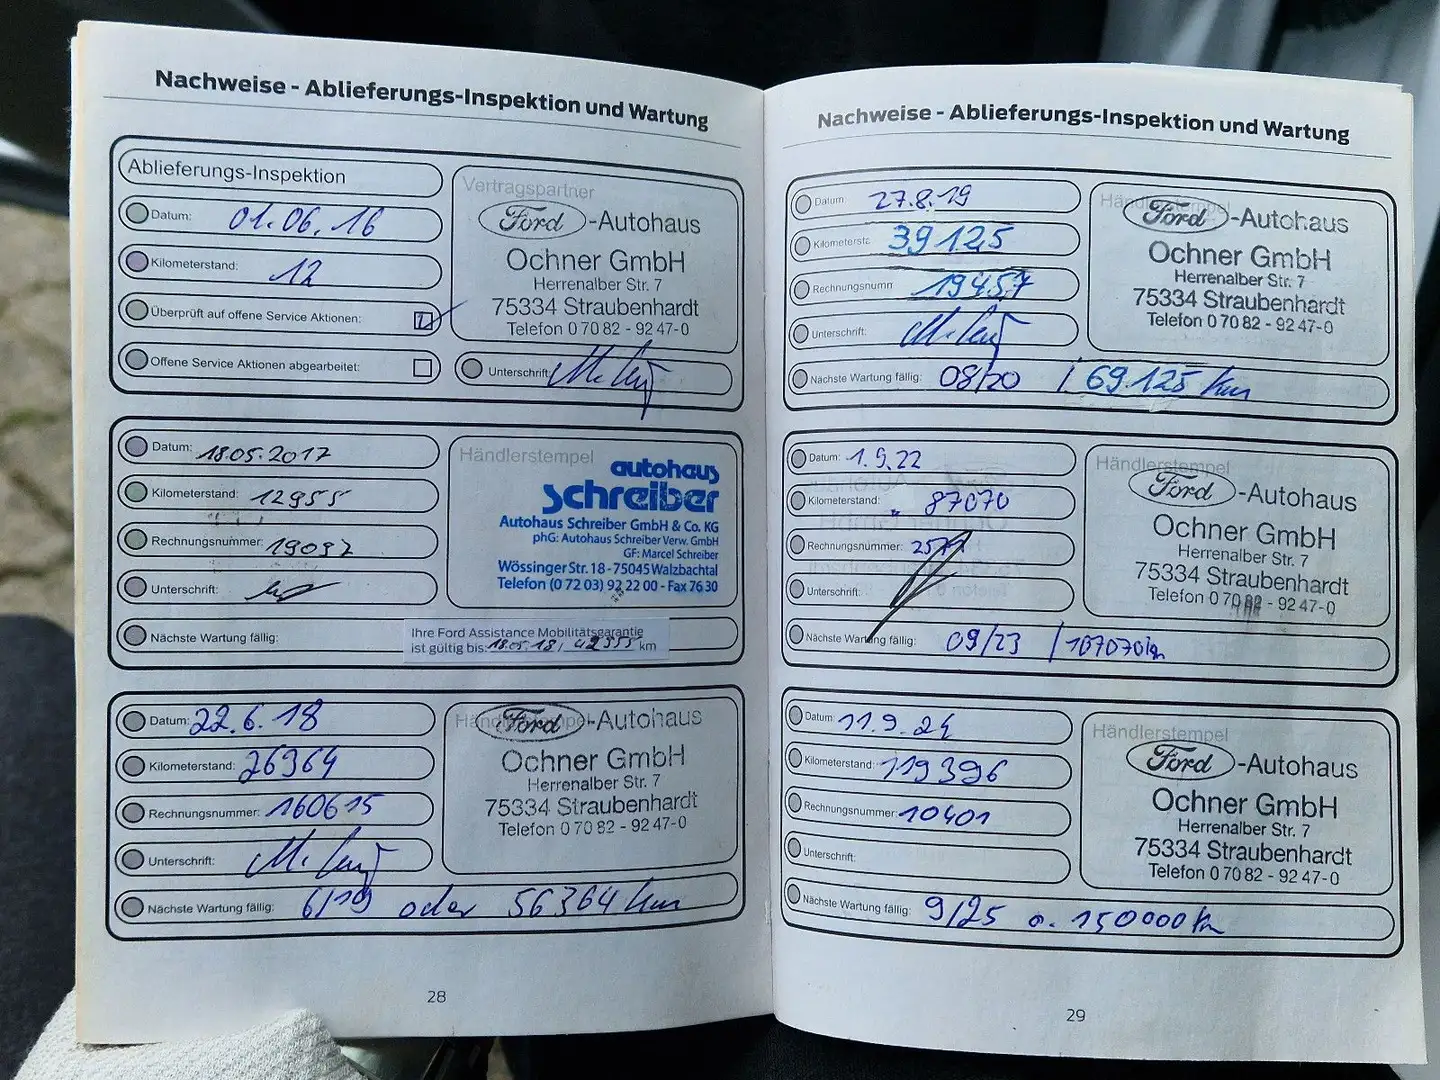 Nachweise - Ablieferungs-Inspektion und Wartung
Ablieferungs-Inspektion
Datum: 01.06.16
Kilometerstand: 12
Überprüft auf offene Service Aktionen:
Offene Service Aktionen abgearbeitet:
Vertragspartner
Ford-Autohaus
Ochner GmbH
Herrenalber Str. 7
75334 Straubenhardt
Telefon 0 70 82 - 92 47-0
Unterschrift:
Datum: 18.05.2017
Kilometerstand: 12955
Rechnungsnummer: 19097
Unterschrift:
Händlerstempel
autohaus
schreiber
Autohaus Schreiber GmbH & Co. KG
phG: Autohaus Schreiber Verw. GmbH
GF: Marcel Schreiber
Wössinger Str. 18 - 75045 Walzbachtal
Telefon (0 72 03) 92 22 00 - Fax 76 30
Nächste Wartung fällig:
Ihre Ford Assistance Mobilitätsgarantie
ist gültig bis: 18.05.18, 42955 km
Datum: 22.6.18
Kilometerstand: 26364
Rechnungsnummer: 160615
Unterschrift:
Nächste Wartung fällig: 6/19 oder 56364 km
Händlerstempel
Ford-Autohaus
Ochner GmbH
Herrenalber Str. 7
75334 Straubenhardt
Telefon 0 70 82 - 92 47-0
28
Nachweise - Ablieferungs-Inspektion und Wartung
Datum 27.8.19
Kilometersta 39125
Rechnungsnumm 19457
Unterschrift:
Nächste Wartung fällig: 08/20 / 69125 km
Händlerstempel
Ford-Autohaus
Ochner GmbH
Herrenalber Str. 7
75334 Straubenhardt
Telefon 0 70 82 - 92 47-0
Datum: 1.9.22
Kilometerstand: 87070
Rechnungsnummer:
Unterschrift:
Nächste Wartung fällig: 09/23 / 107070km
Händlerstempel
Ford-Autohaus
Ochner GmbH
Herrenalber Str. 7
75334 Straubenhardt
Telefon 0 70 82 - 92 47-0
Datum: 11.9.24
Kilometerstand: 119396
Rechnungsnummer: 10401
Unterschrift:
Nächste Wartung fällig: 9/25 o. 150000km
Händlerstempel
Ford-Autohaus
Ochner GmbH
Herrenalber Str. 7
75334 Straubenhardt
Telefon 0 70 82 - 92 47-0
29